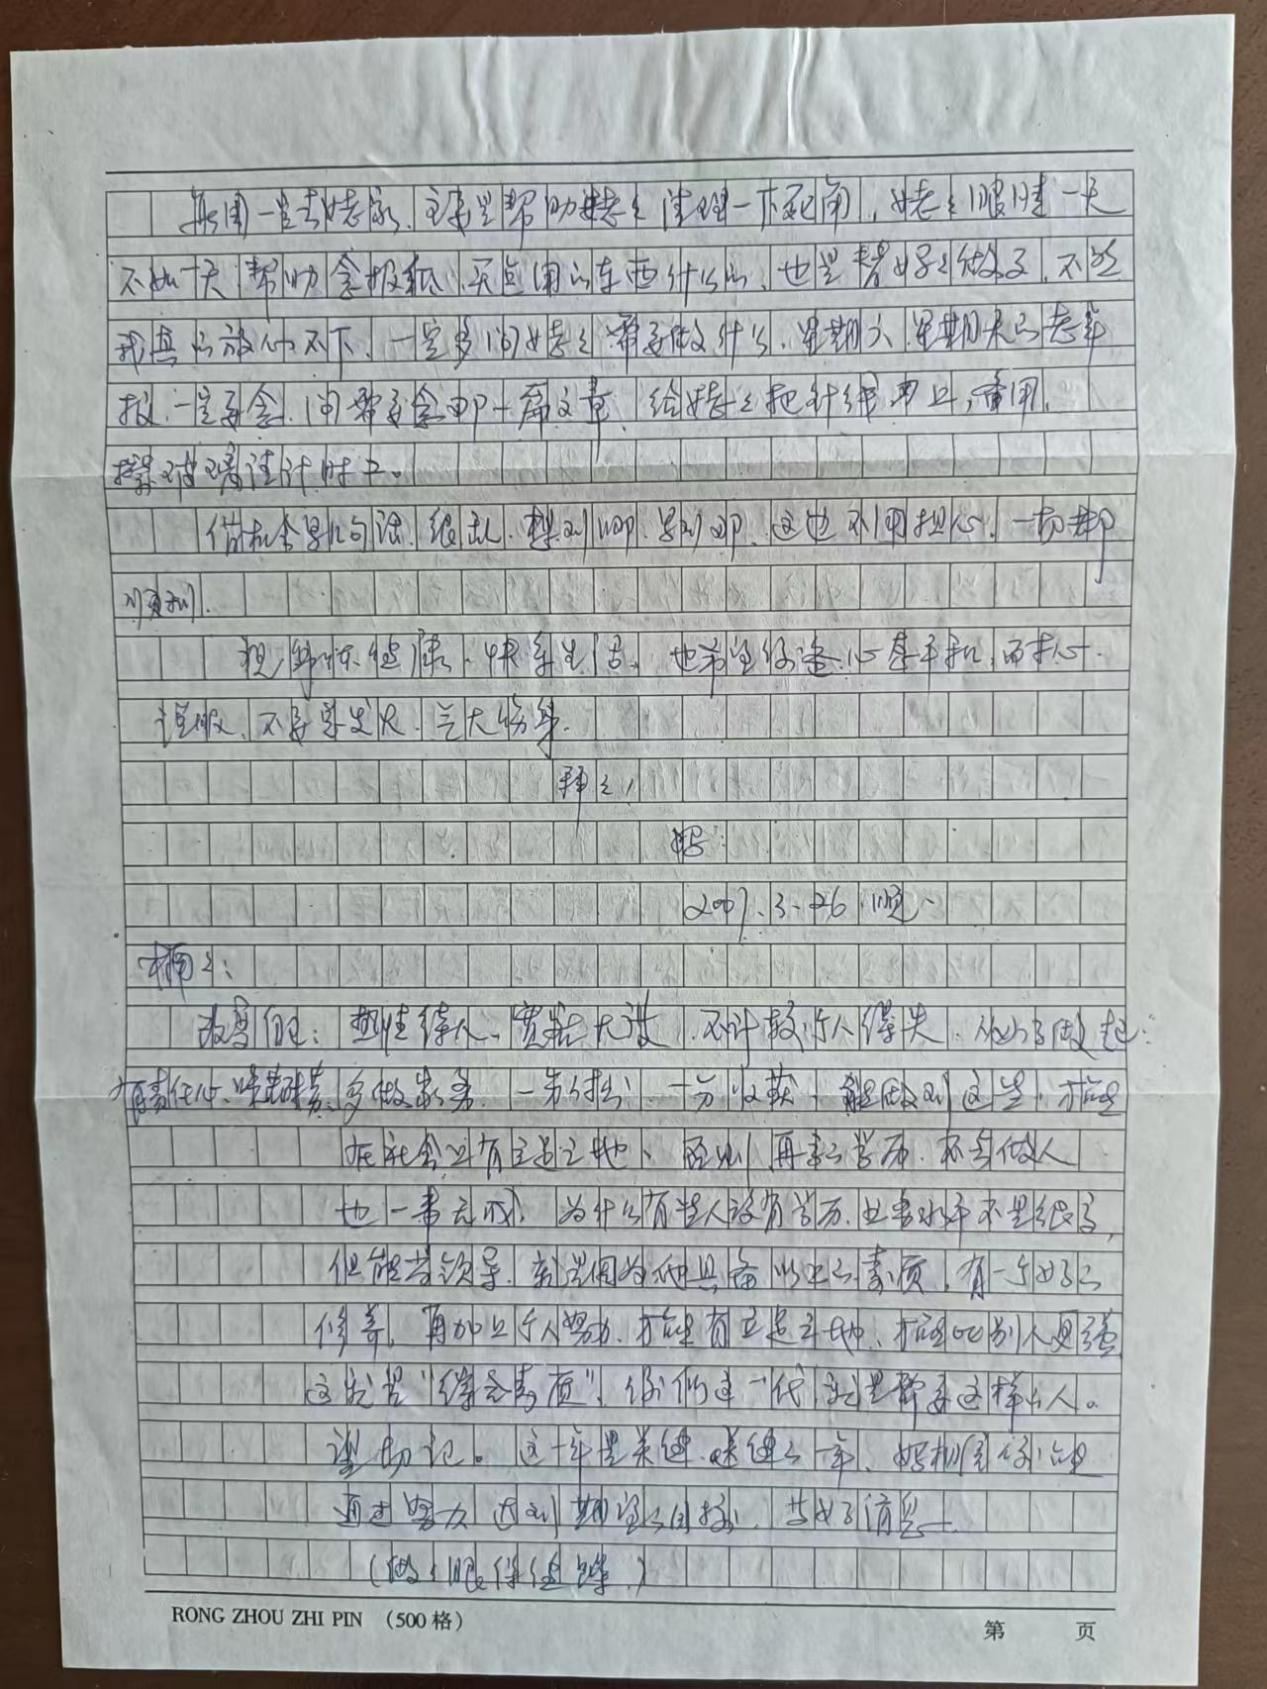 每周一定去姥家、主要是帮助姥姥清理一下死角，姥姥眼睛一天
不如一天，帮助拿报纸、买点用的东西什么的，也是替妈妈做了，不然
我真的放心不下、一定多问姥姥需要做什么，星期六、星期天的老年
报、一定要拿，问需要拿那一篇文章、给姥姥把针线串上，备用，
擦玻璃注计时工。
借机会写几句话、很乱、想到哪、写到哪、这也不用担心、一切都
顺利。
祝身体健康、快乐生活、也希望你遇心甚平和，而耐心
说服、不要学发火、气大伤身。
拜拜，
妈：
2007、3-26 晚、
楠楠：
改变自己：热情待人、宽宏大量、不计较个人得失、从小事做起：
有责任心、吃苦耐劳、多做家务、一分付出、一分收获、能做到这些，才能
在社会上有立足之地、否则再高的学历、不会做人
也一事无成、为什么有些人没有学历、业务水平不是很高，
但能当领导、就是因为他具备以上的素质，有一个好的
修养，再加上个人努力、才能有立足之地、才能比别人更强
这就是“综合素质”，你们这一代，就是需要这样的人。
望切记。这一年是关键、关键的一年、妈相信你能
通过努力达到期望的目标、等好消息——
（做、眼保健操）
RONG ZHOU ZHI PIN （500格） 第 页